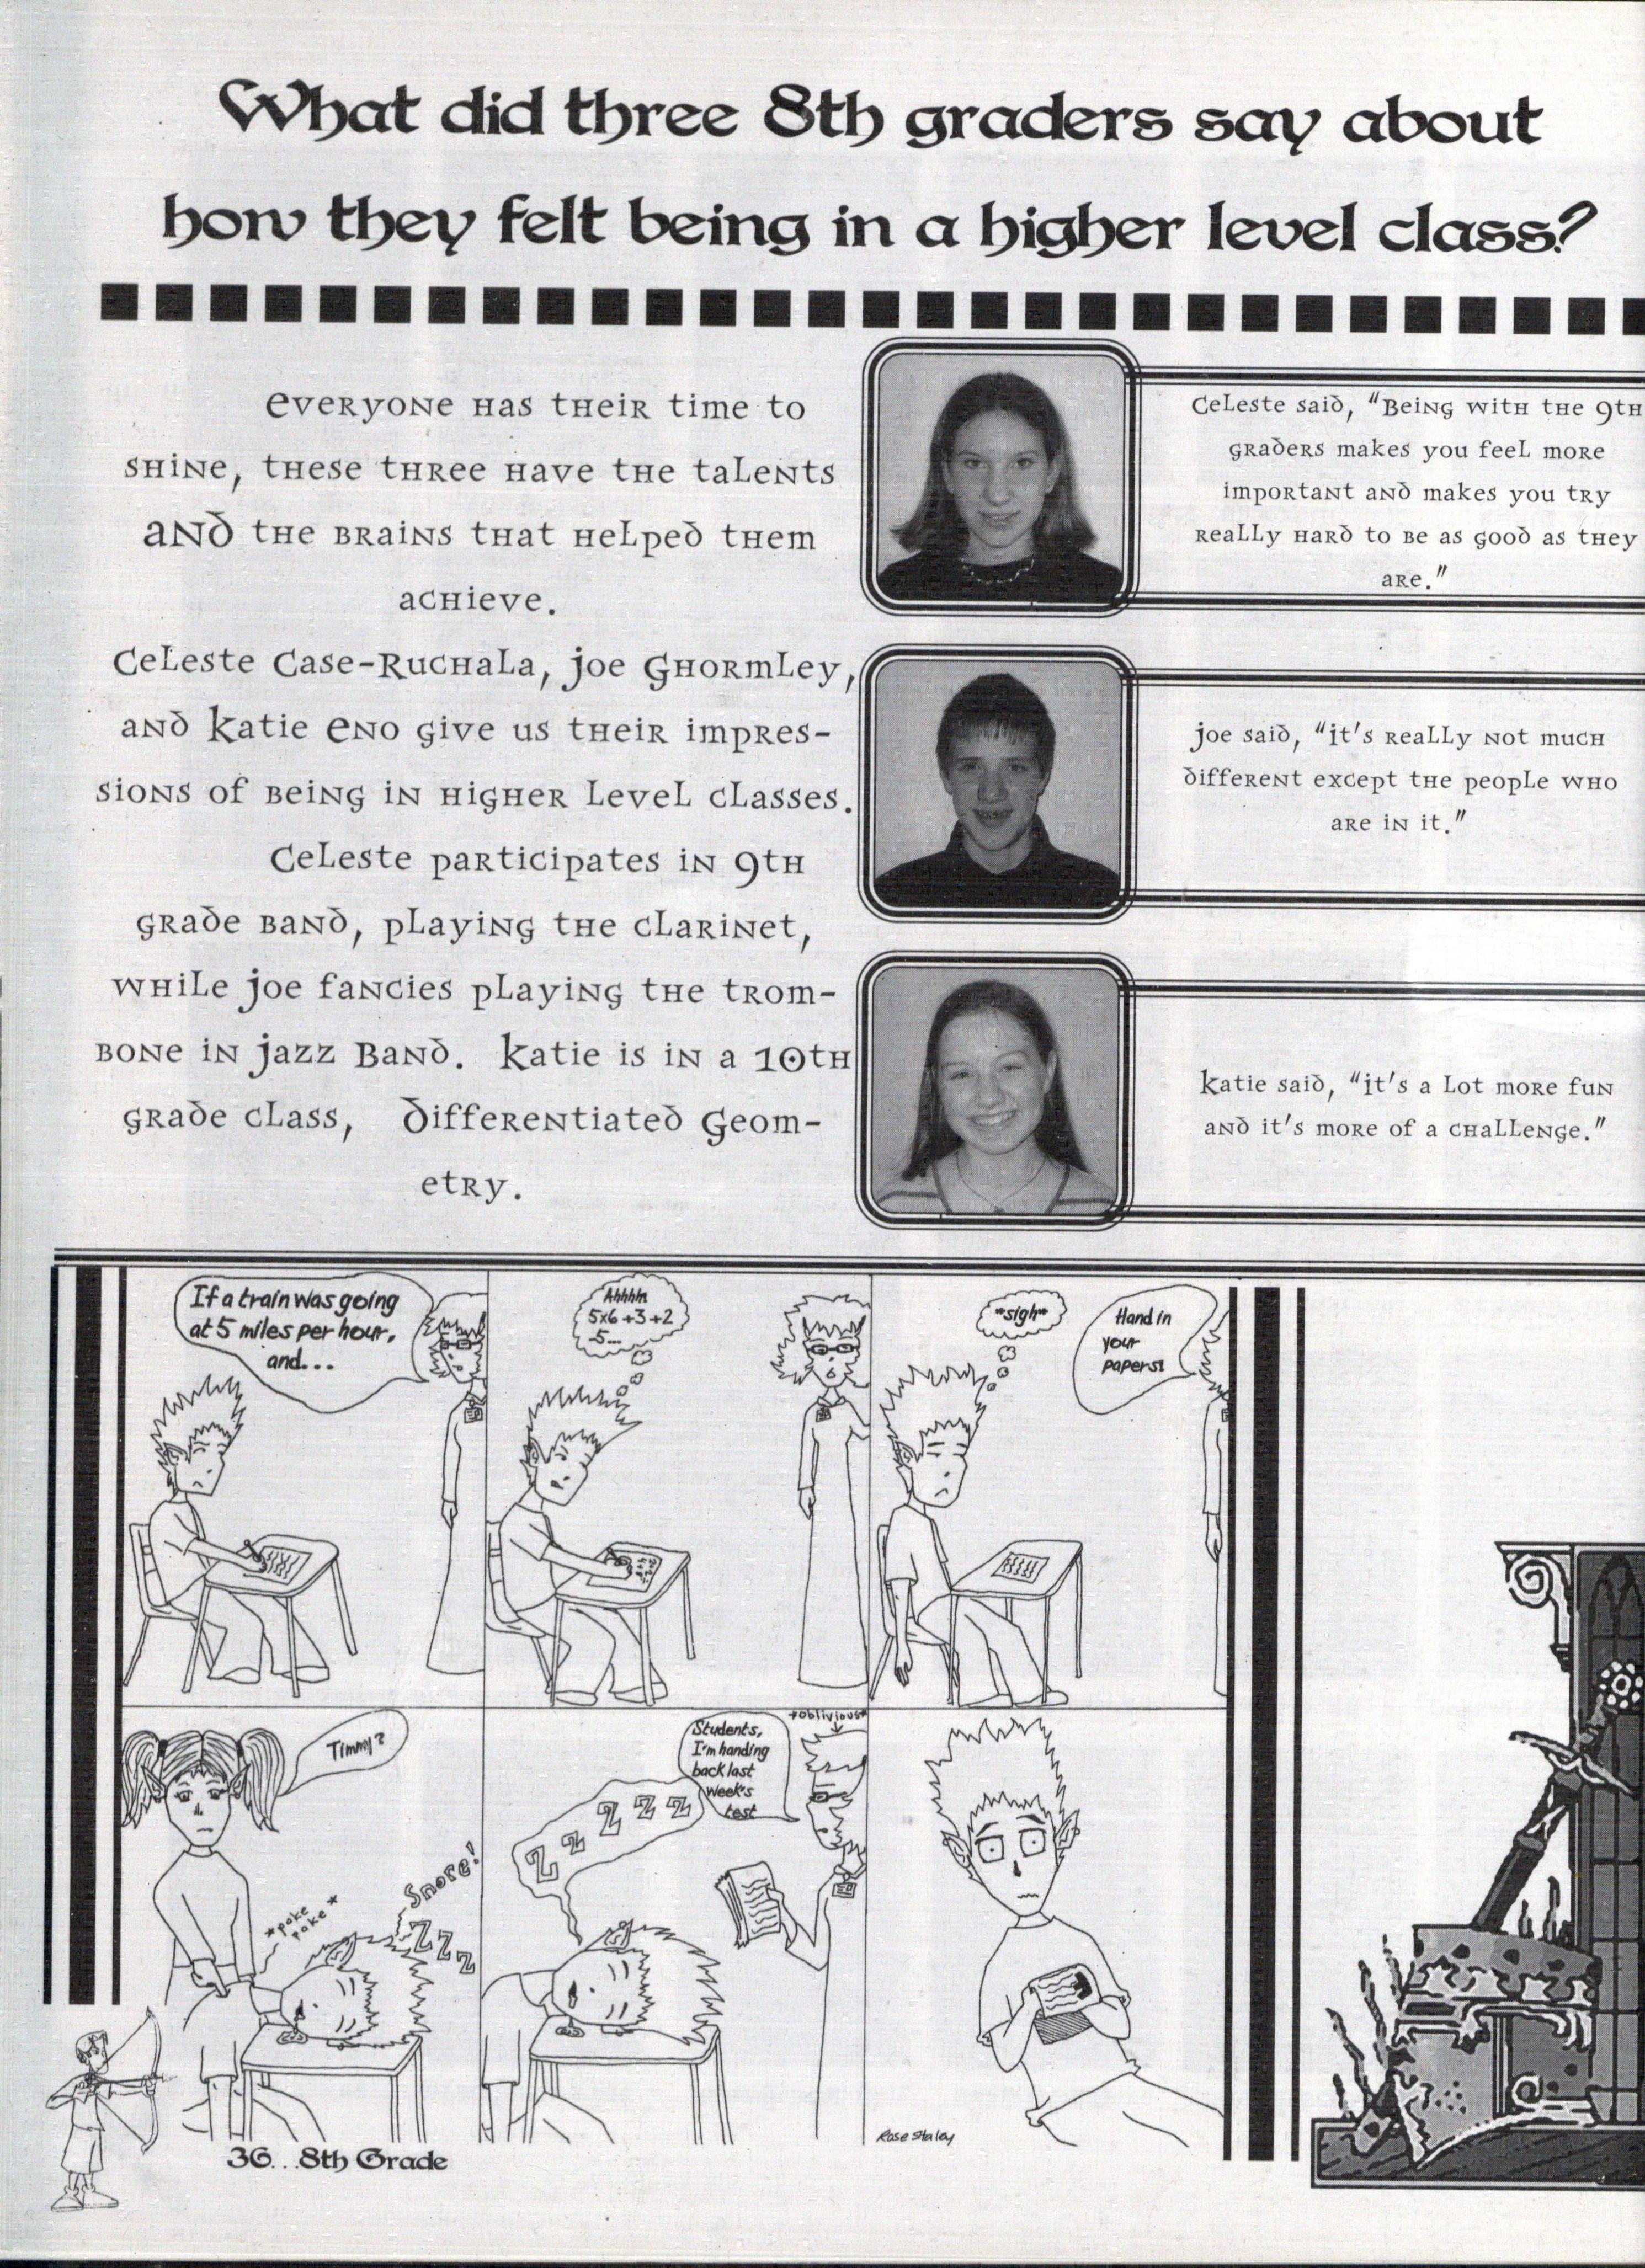 What did three 8th graders say about
how they felt being in a higher level class?
everyone has their time to
shine, these three have the talents
and the brains that helped them
achieve.
Celeste Case-Ruchala, Joe Ghormley,
and Katie Eno give us their impres-
sions of being in higher level classes.
Celeste participates in 9th
grade band, playing the clarinet,
while Joe fancies playing the trom-
bone in Jazz Band. Katie is in a 10th
grade class, Differentiated Geom-
etry.
Celeste said, "Being with the 9th
graders makes you feel more
important and makes you try
really hard to be as good as they
are."
Joe said, "it's really not much
different except the people who
are in it."
Katie said, "it's a lot more fun
and it's more of a challenge."
If a train was going
at 5 miles per hour,
and...
Ahhhh
5x6+3+2
-5...
*sigh*
Hand in
your
papers!
Timmy?
*poke
poke*
Snore!
ZZZ
Students,
I'm handing
back last
week's
test
*oblivious*
Z Z Z Z Z
Rose Staley
36...8th Grade